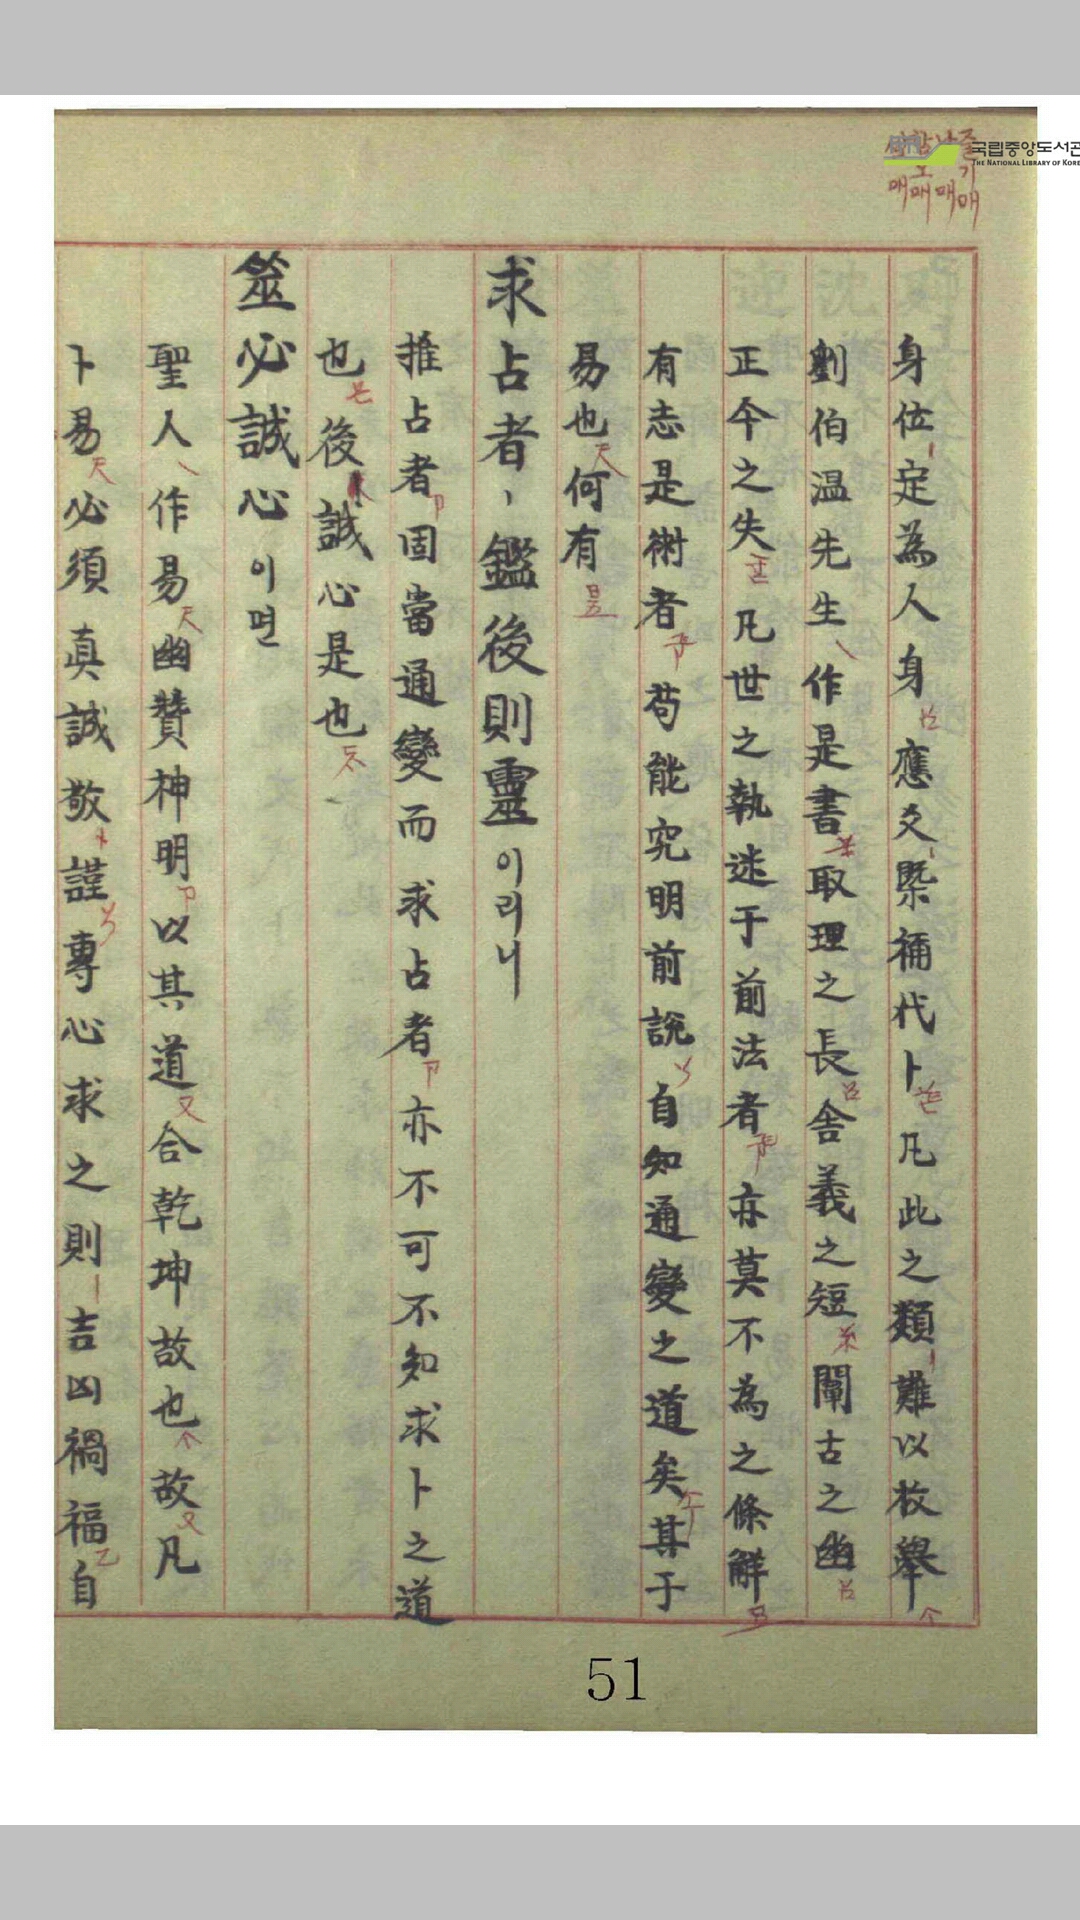 국립중앙도서관
THE NATIONAL LIBRARY OF KOREA
身位定為人身應爻槩補代卜凡此之類難以枚舉
劉伯温先生作是書取理之長舎義之短闡古之幽
正今之失凡世之執迷于前法者亦莫不為之條解
有志是術者苟能究明前說自知通變之道矣其于
易也何有
求占者、鑑後則靈이리니
推占者固當通變而求占者亦不可不知求卜之道
也後誠心是也
筮必誠心이면
聖人作易幽贊神明以其道合乾坤故也故凡
卜易必須真誠敬謹專心求之則吉凶禍福自
51